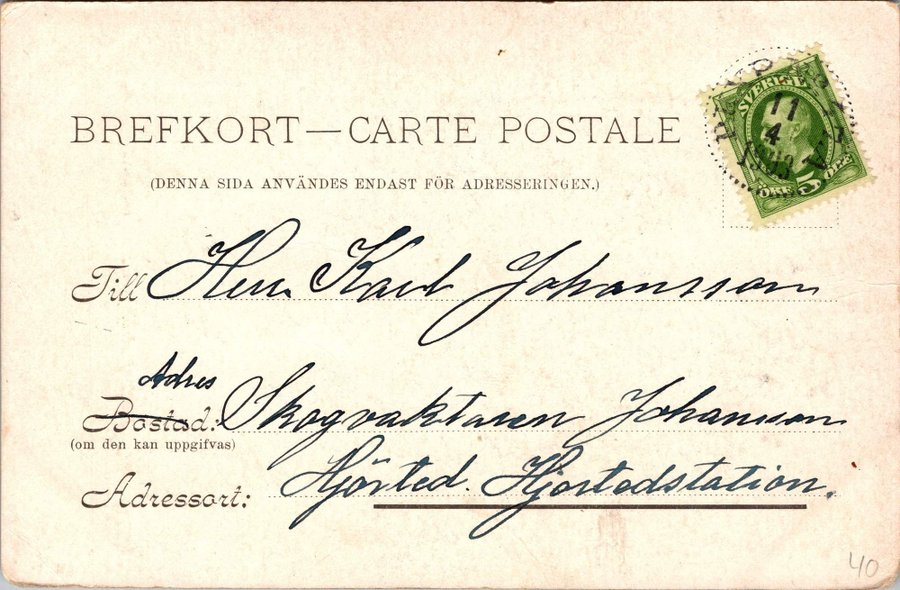 BREFKORT—CARTE POSTALE
(DENNA SIDA ANVÄNDES ENDAST FÖR ADRESSERINGEN.)
SVERIGE
11
4
1903
ÖRE 5 ÖRE
Till Herr Karl Johansson
Adres
Bostad: Skogvaktaren Johansson
(om den kan uppgifvas)
Adressort: Hjorted. Hjortedstation.
40